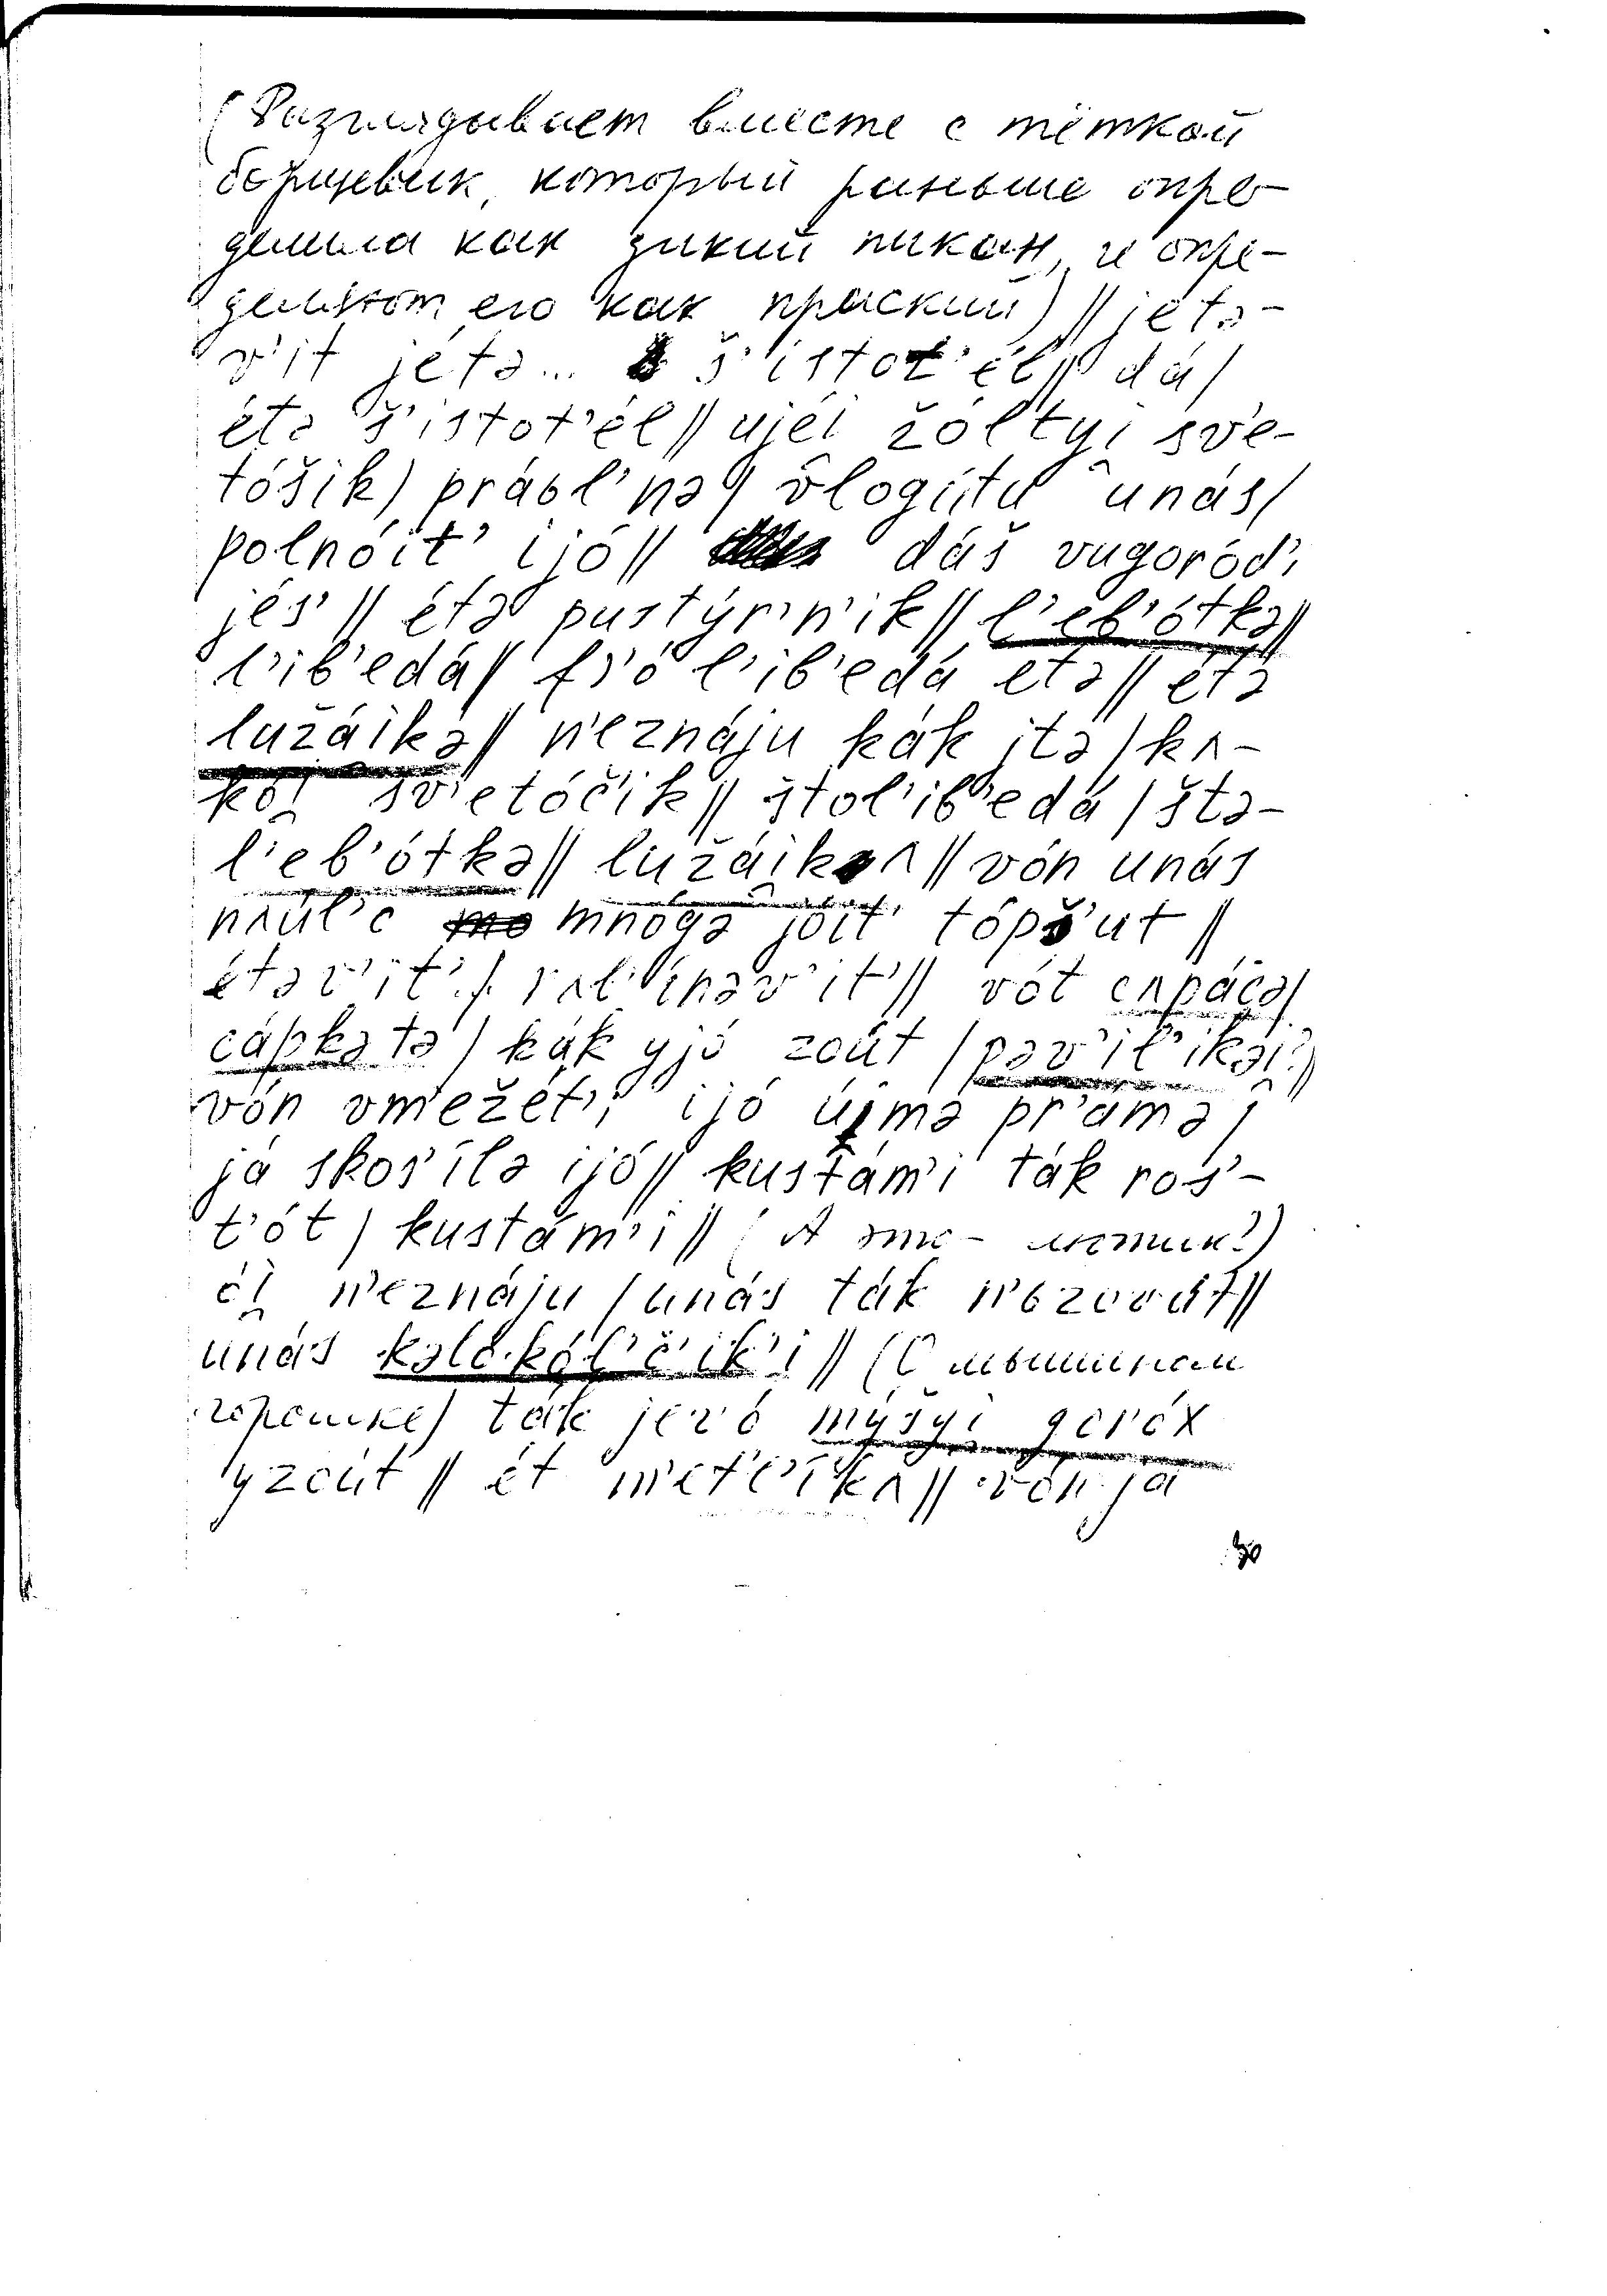 (Разглядывает вместе с тёткой
борщевик, который раньше опре-
делила как дикий пикан, и опре-
деляют его как праский) // jétə-
v'it jétə... š'istot'él // dá /
étə š'istot'él // ujéi̯ žóltyi̯ sv'e-
tóšik / práol'nə / vlogú tu unás /
polnóit' ijó // dáš vugoród'i
jés' // étə pustýrn'ik // l'eb'ótkə //
l'ib'edá // fs'ó l'ib'edá etə // étə
lužái̯kə // n'eznáju kák itə / kʌ-
kói̯ sv'etóč'ik // štol'ib'edá / štə-
l'eb'ótkə // lužái̯kʌ // vón unás
nʌúl'c mnógə jóit' tópš'ut //
étəv'it' / v'it' // vót cʌpácə /
cápkə tə / kák yjó zoút / pəv'il'ikəi̯? //
vón vm'ežét'i ijó úi̯mə pr'ámə /
já skos'ílə ijó // kustám'i ták ros'-
t'ót / kustám'i // (А это - лютик?)
ói̯ n'eznáju / unás ták n'ezovút //
unás kəlokól'č'ik'i // (О мышином
горошке) ták jevó mýšyi̯ goróx
yzoút // ét m'etl'íkʌ // vón já
30